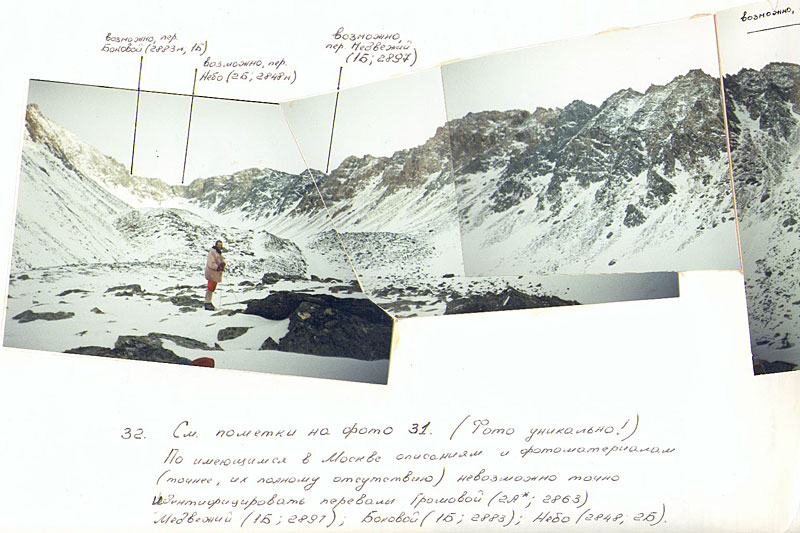 возможно, пер.
Боковой (2883м, 1Б)
возможно, пер.
Небо (2Б; 2848м)
возможно,
пер. Медвежий
(1Б; 2897)
возможно,
32. См. пометки на фото 31. (Фото уникально!)
По имеющимся в Москве описаниям и фотоматериалам
(точнее, их полному отсутствию) невозможно точно
идентифицировать перевалы Громовой (2А*; 2863)
Медвежий (1Б; 2897); Боковой (1Б; 2883); Небо (2848; 2Б).